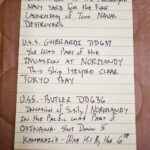 NAVY YARD FOR THE
LAUNCHING OF TWO NAVAL
DESTROYERS
U.S.S. GHERARDI DD637
SHE WAS PART OF THE
INVASION AT NORMANDY
THIS SHIP HELPED CLEAR
TOKYO BAY
U.S.S. BUTLER DD636
INVASION OF SICILY / NORMANDY
IN THE PACIFIC WAS PART OF
OKINAWA SHOT DOWN 5
KAMAKAZIS - HIT BY THE 6TH